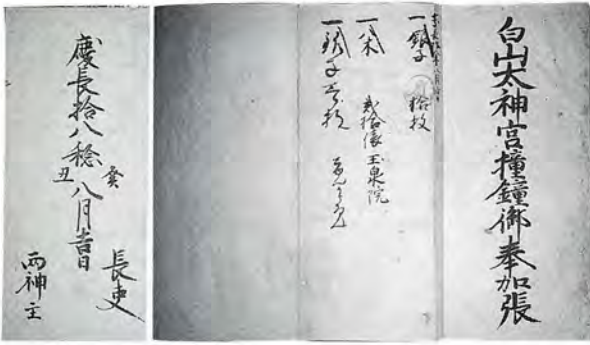 白山太神宮撞鐘御奉加張
一銀子 拾枚
一米 弐拾俵 玉泉院
一銀子壱枚
慶長拾八稔癸丑八月吉日
長吏
両神主